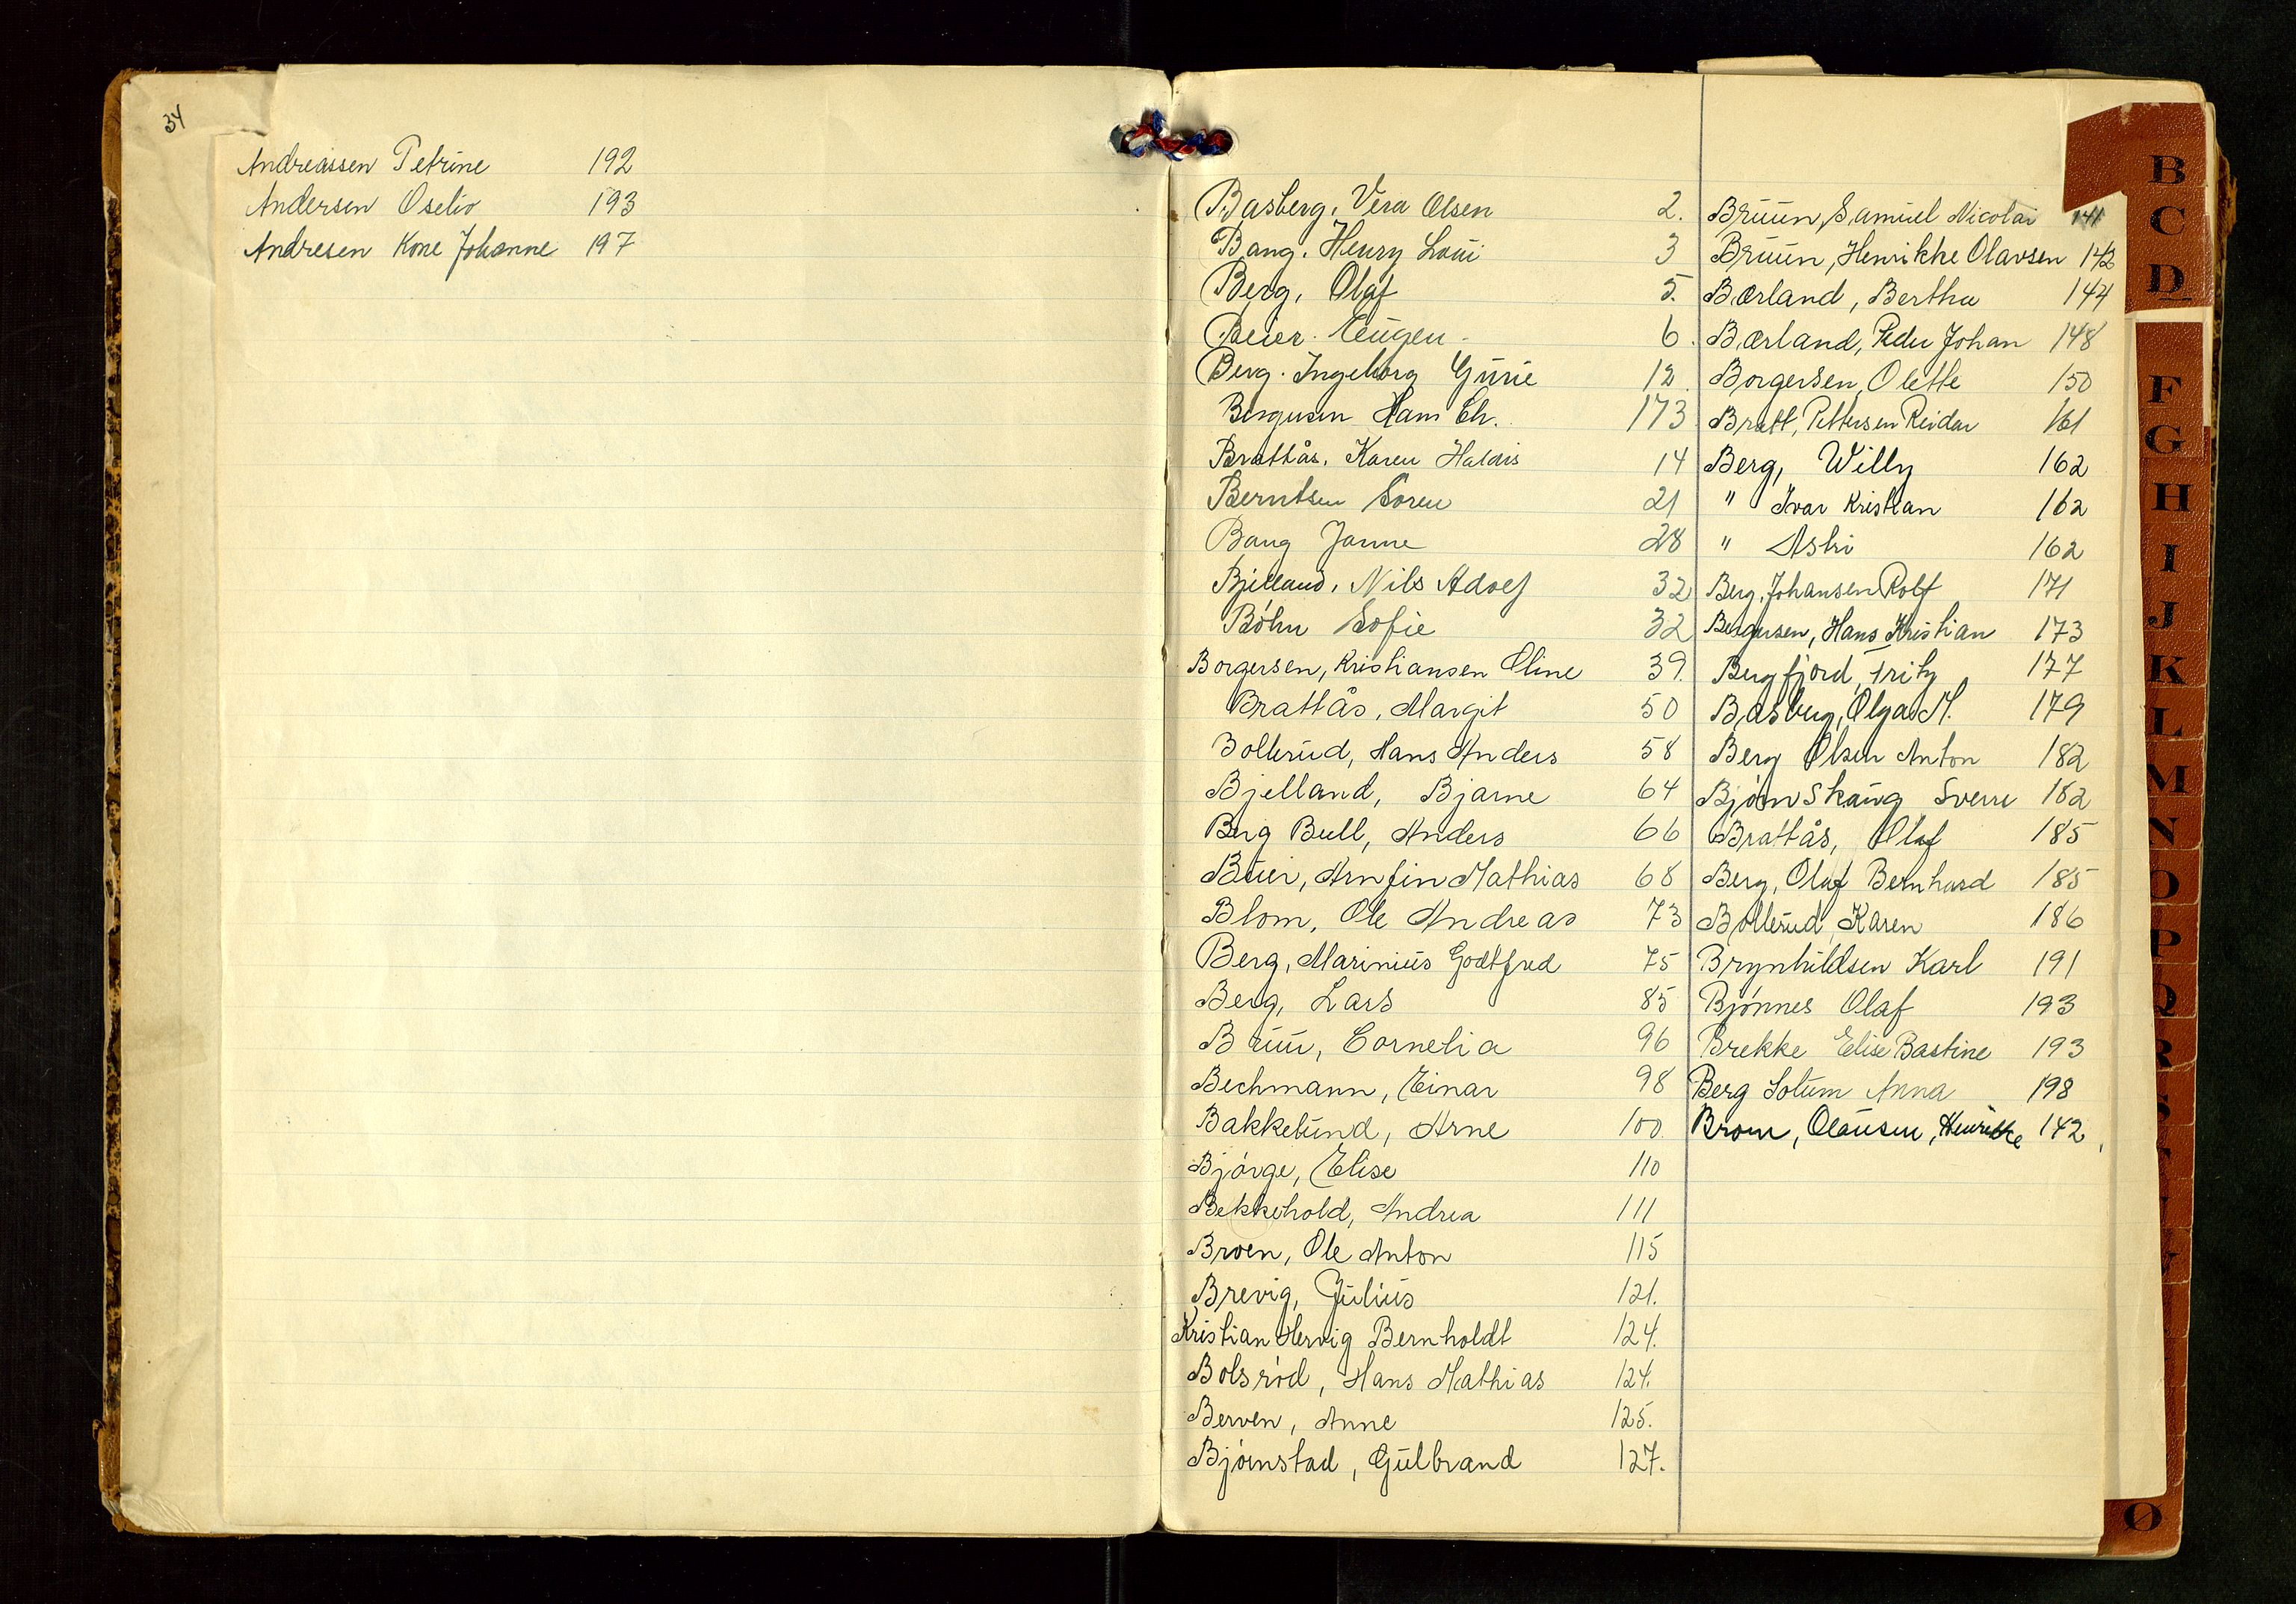 34
Andreassen Petrine 192
Andersen Oseliv 193
Andresen Kone Johanne 197
Basberg, Vera Olsen 2.
Bang. Henry Loui 3
Berg, Olaf 5.
Beier. Eugen. 6.
Berg. Ingeborg Gurie 12.
Bergusen Hans Ch. 173
Brattås, Karen Haldis 14
Berntsen Soren 21
Bang Janne 28
Bjelland, Nils Adolf 32
Böhn Sofie 32
Borgersen, Kristiansen Oline 39.
Brattås, Margit 50
Bollerud, Hans Anders 58
Bjelland, Bjarne 64
Berg Bull, Anders 66
Buer, Arnfin Mathias 68
Blom, Ole Andreas 73
Berg, Marinius Godtfred 75
Berg, Lars 85
Bruu, Cornelia 96
Bechmann, Einar 98
Bakkelund, Arne 100.
Bjórge, Elise 110
Bekkehold, Andrea 111
Broen, Ole Anton 115
Brevig, Julius 121.
Kristian Hervig Bernholdt 124.
Bolsród, Hans Mathias 124.
Berven, Anne 125.
Bjórnstad, Gulbrand 127.
Bruun, Samuel Nicolai 141
Bruun, Henrikke Olavsen 142
Bærland, Bertha 144
Bærland, Peder Johan 148
Borgersen, Olette 150
Bratt, Pettersen Reidar 161
Berg, Willy 162
" Ivar Kristian 162
" Aslri 162
Berg, Johansen Rolf 171
Bergusen, Hans Kristian 173
Bergfjord, Fritz 177
Basberg, Olga M. 179
Berg Olsen Anton 182
Björnskaug Sverre 182
Brattås, Olaf 185
Berg, Olaf Bernhard 185
Bollerud, Karen 186
Brynhildsen Karl 191
Bjónnes Olaf 193
Brekke Elise Bastine 193
Berg Solum Anna 198
Brom, Olausen, Henrikke 142
B
C
D
F
G
H
I
J
K
L
M
N
O
P
Q
R
S
Ø